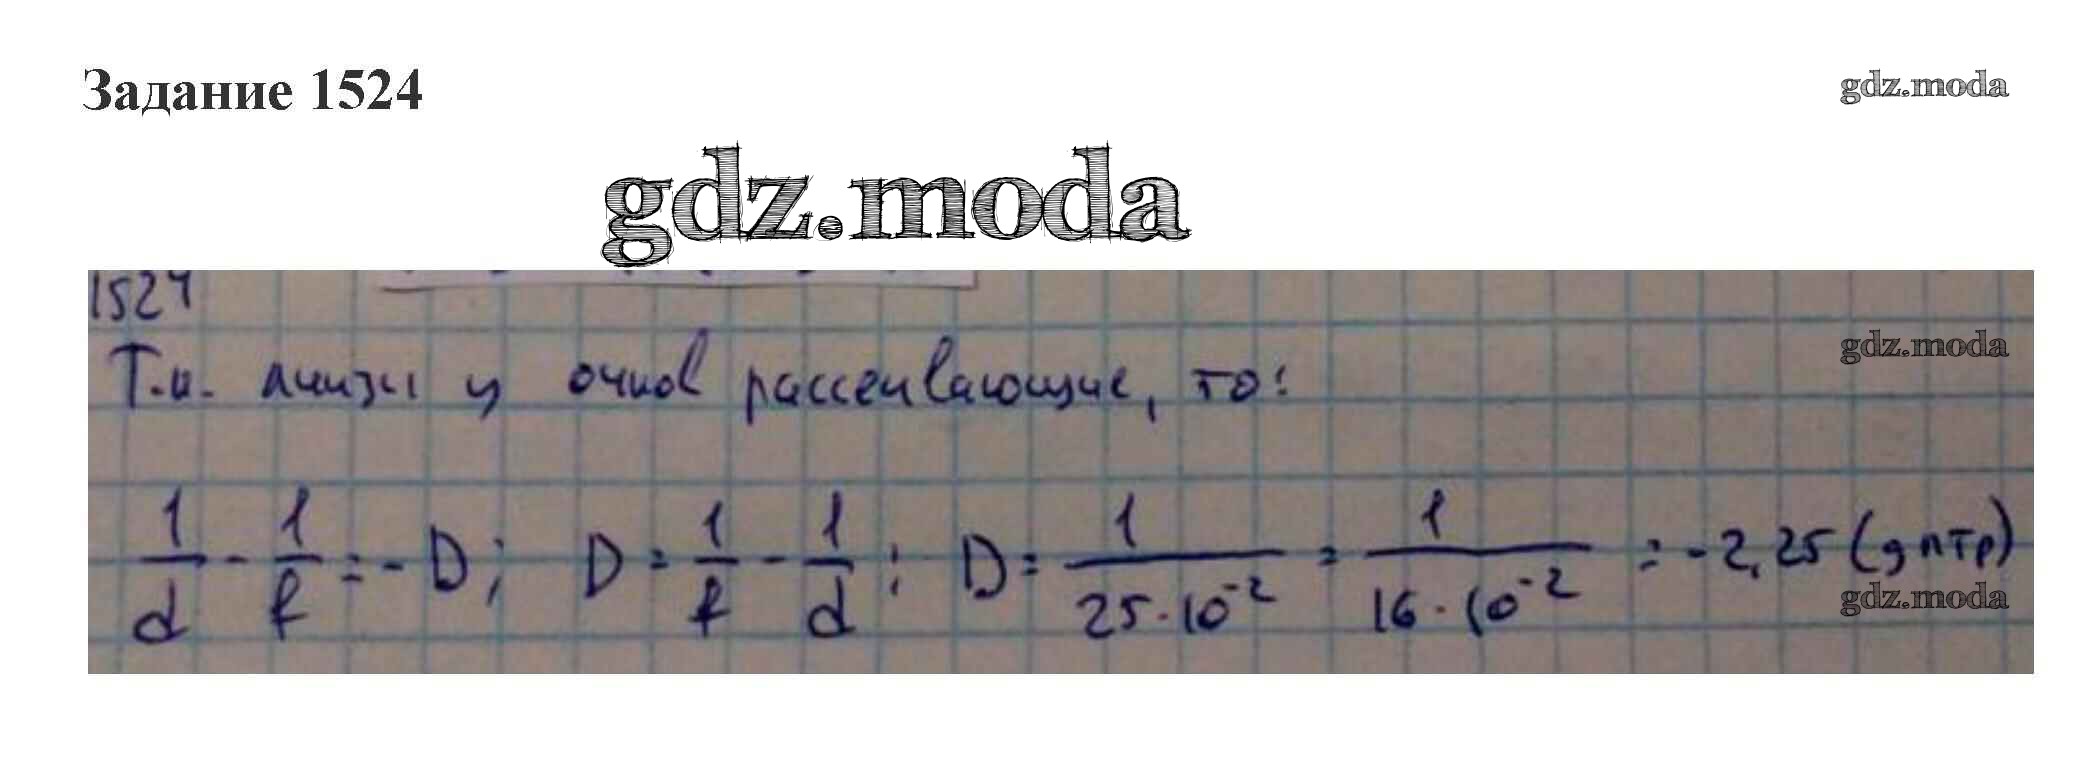 Задание 1524
gdz.moda
gdz.moda
1524
gdz.moda
Т.к. линзы у очков рассеивающие, то:
1/d - 1/f = - D; D = 1/f - 1/d; D = 1/25·10⁻² = 1/16·10⁻² = -2,25 (дптр)
gdz.moda